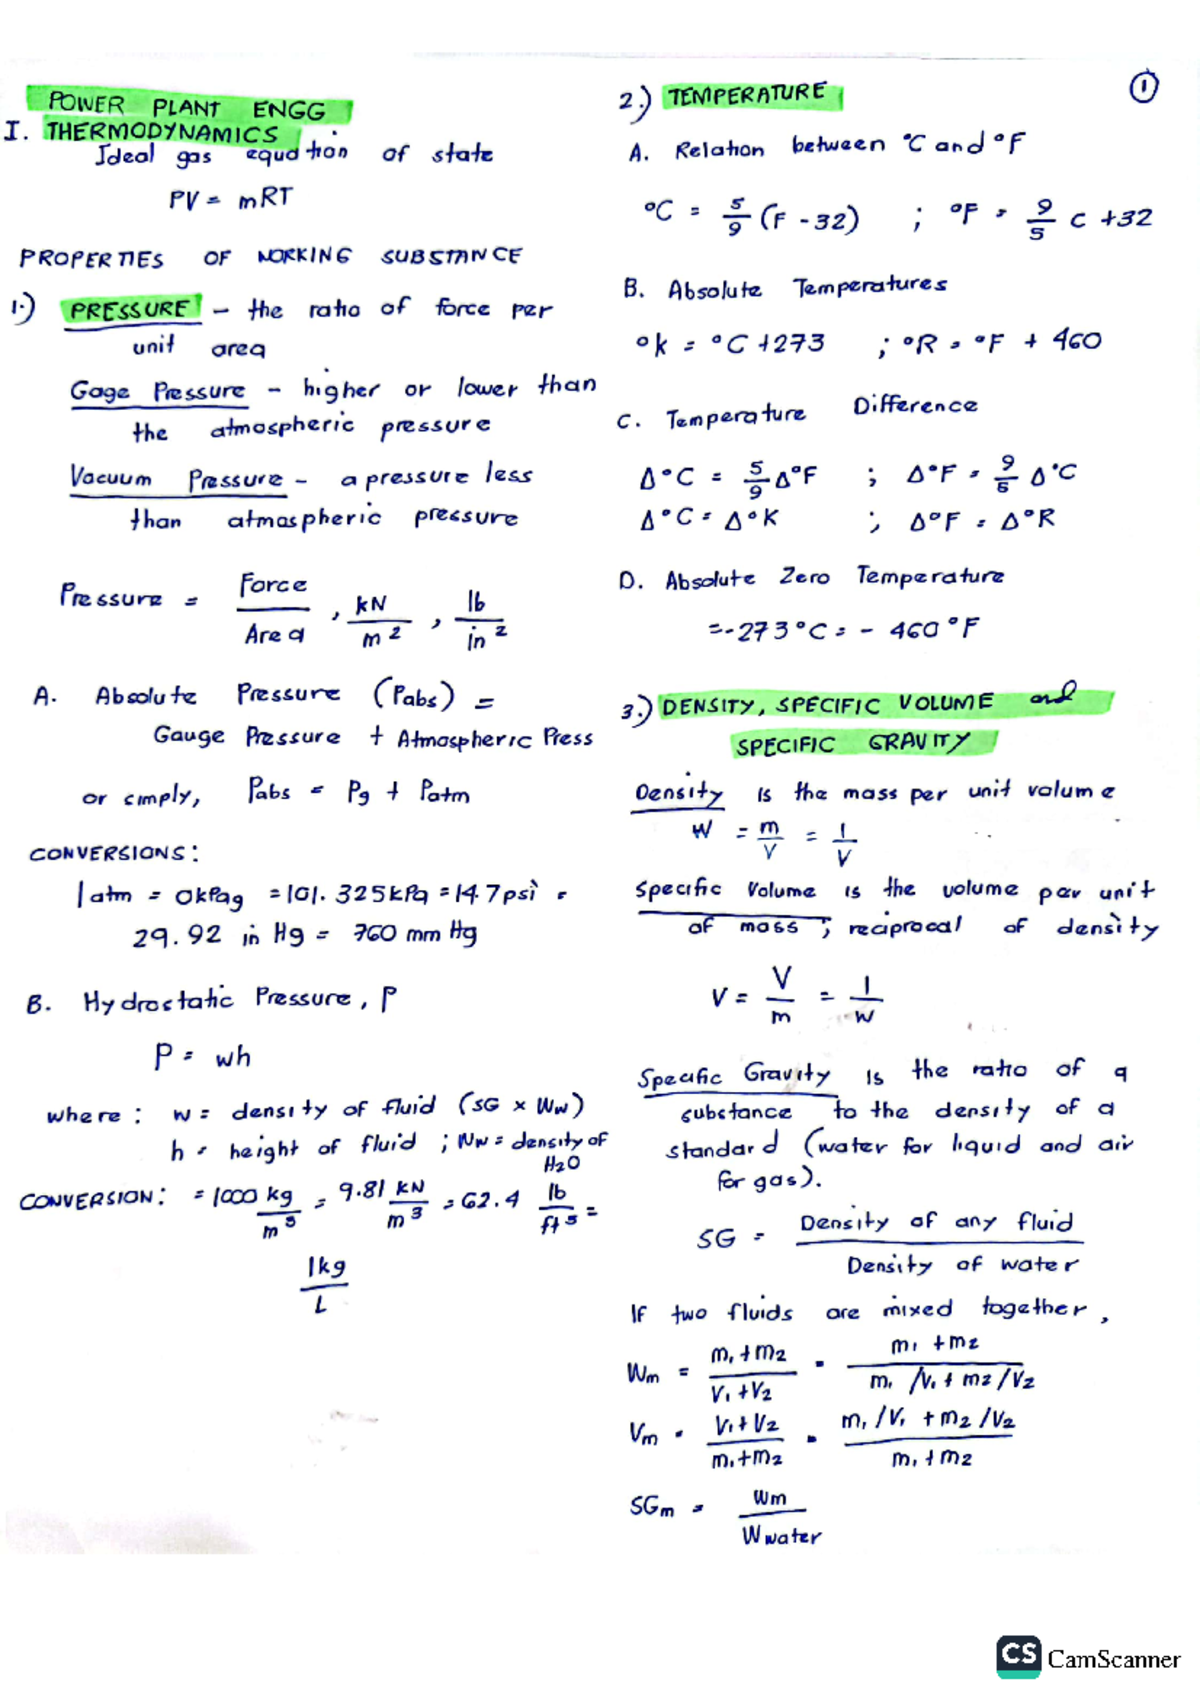 POWER PLANT ENGG
I. THERMODYNAMICS
Ideal gas equation of state
PV = mRT
PROPERTIES OF WORKING SUBSTANCE
1.) PRESSURE - the ratio of force per
unit area
Gage Pressure - higher or lower than
the atmospheric pressure
Vacuum Pressure - a pressure less
than atmospheric pressure
Pressure = Force / Area , kN / m² , lb / in²
A. Absolute Pressure (Pabs) =
Gauge Pressure + Atmospheric Press
or simply, Pabs = Pg + Patm
CONVERSIONS:
1 atm = 0kPag = 101.325kPa = 14.7psi =
29.92 in Hg = 760 mm Hg
B. Hydrostatic Pressure, P
P = wh
where: w = density of fluid (SG x Ww)
h = height of fluid ; Ww = density of
H2O
CONVERSION: = 1000 kg / m³ = 9.81 kN / m³ = 62.4 lb / ft³ =
1kg / L
1
2.) TEMPERATURE
A. Relation between °C and °F
°C = 5/9 (F - 32) ; °F = 9/5 C + 32
B. Absolute Temperatures
°k = °C + 273 ; °R = °F + 460
C. Temperature Difference
Δ°C = 5/9 Δ°F ; Δ°F = 9/5 Δ°C
Δ°C = Δ°K ; Δ°F = Δ°R
D. Absolute Zero Temperature
= -273°C = - 460°F
3.) DENSITY, SPECIFIC VOLUME and
SPECIFIC GRAVITY
Density is the mass per unit volume
W = m/V = 1/V
Specific Volume is the volume per unit
of mass ; reciprocal of density
V = V/m = 1/W
Specific Gravity is the ratio of a
substance to the density of a
standard (water for liquid and air
for gas).
SG = Density of any fluid / Density of water
If two fluids are mixed together,
Wm = m1 + m2 / V1 + V2 = m1 + m2 / m1/V1 + m2/V2
Vm = V1 + V2 / m1 + m2 = m1/V1 + m2/V2 / m1 + m2
SGm = Wm / Wwater
CS CamScanner